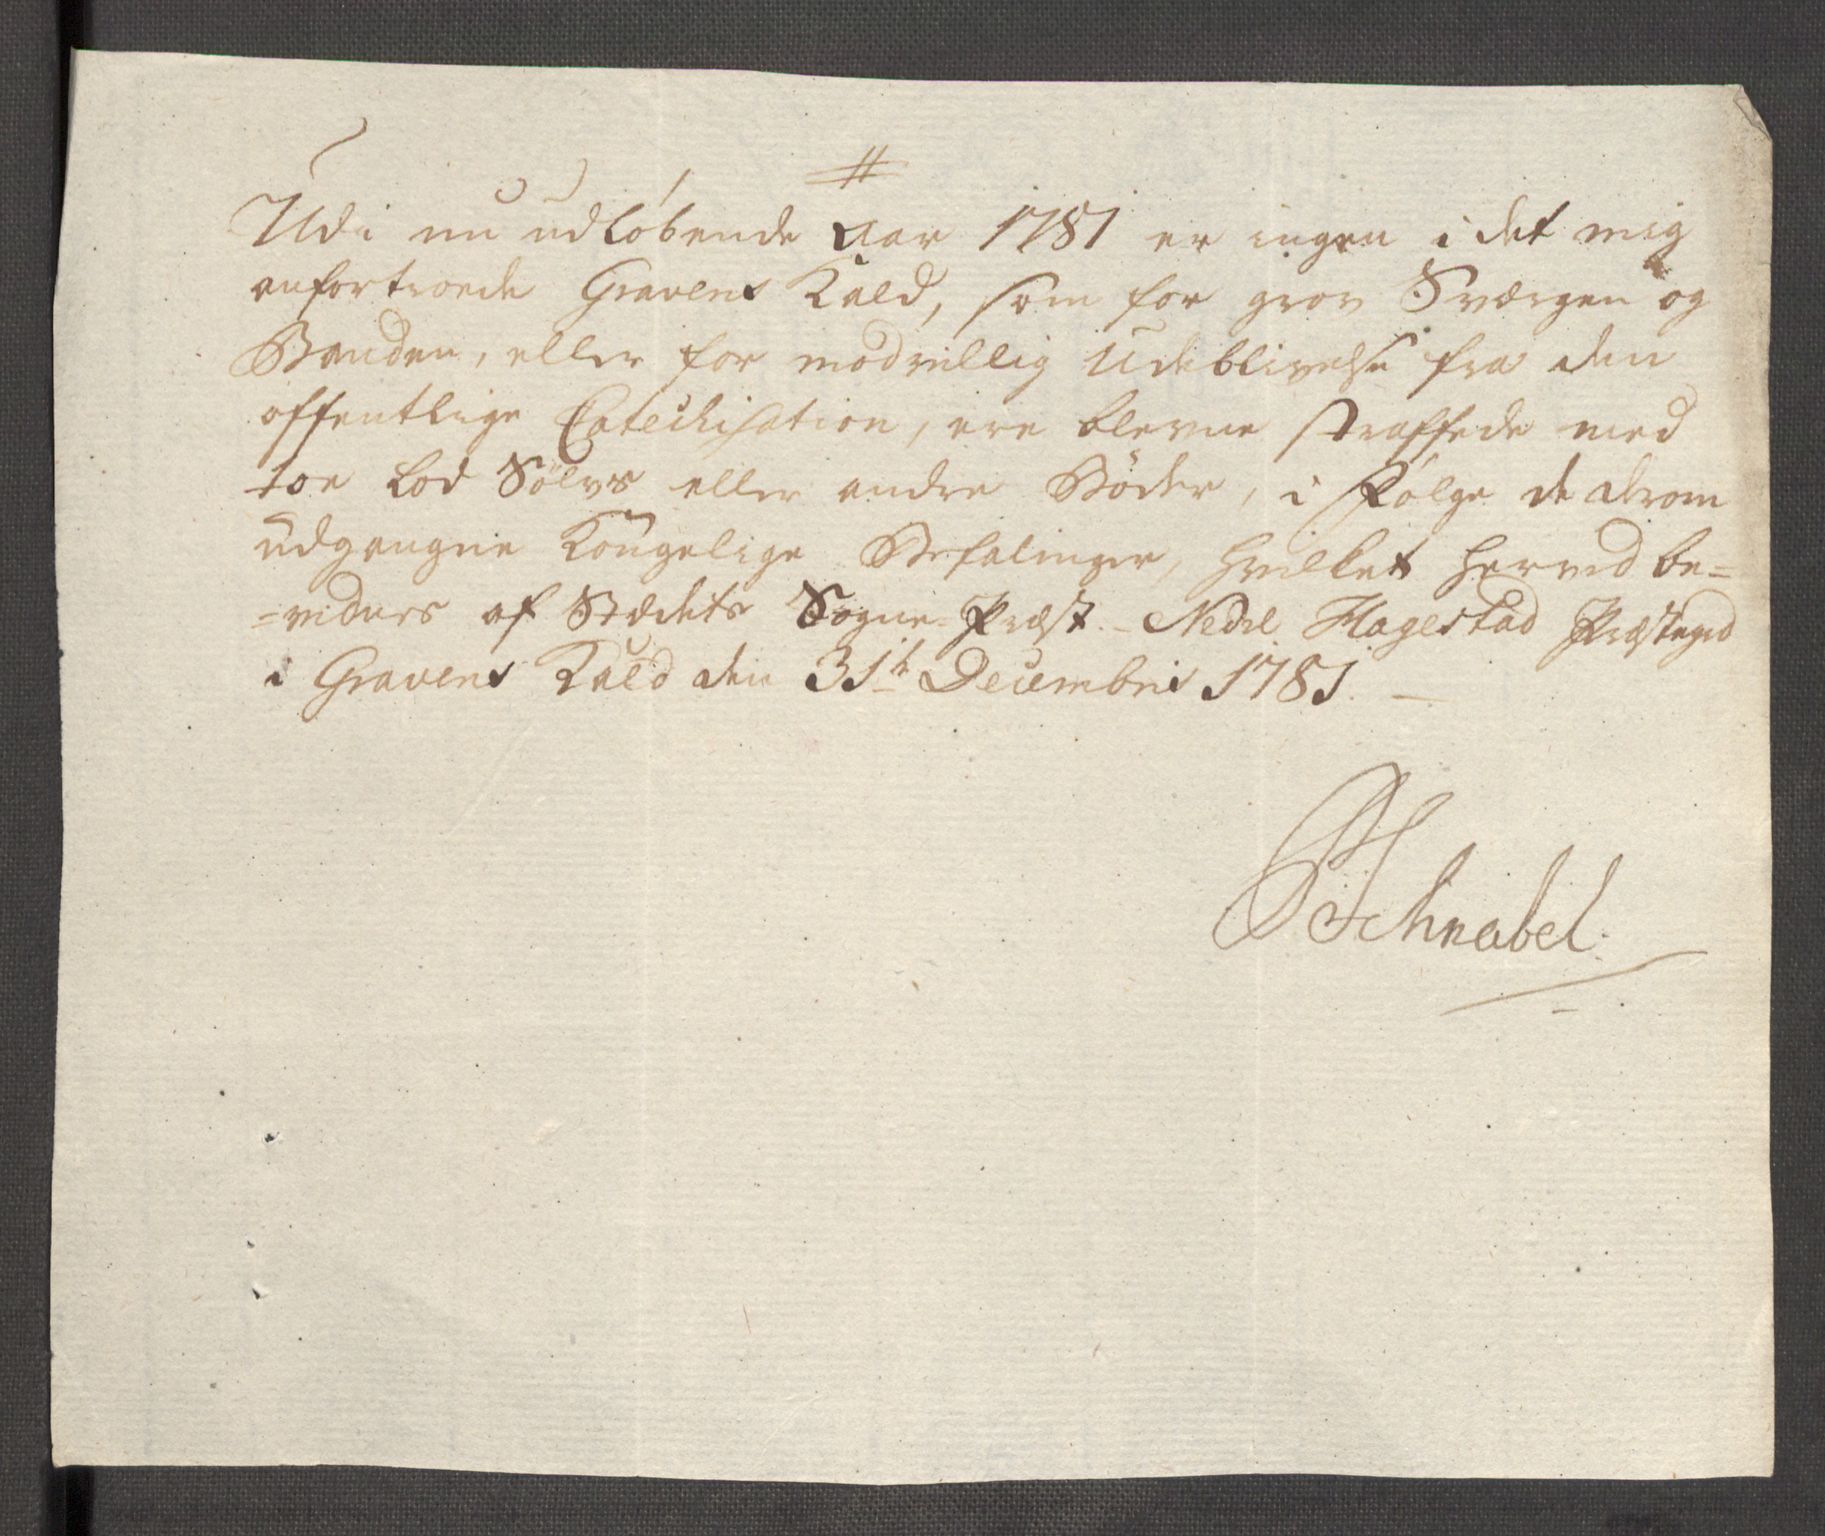 #
Udi nu udløbende Aar 1781 er ingen i det mig
anfortroede Gravens Kald, som for grov Sværgen og
Banden, eller for modvillig Udeblivelse fra den
offentlige Catechisation, ere blevne straffede med
toe Lod Sølvs eller andre Bøder, i Følge de derom
udgangne Kongelige Befalinger, hvilket herved be=
=vidnes af Stædets Sogne=Præst. - Nedre Hagestad Præstegrd
i Gravens Kald den 31te Decembris 1781. -
Schnabel.